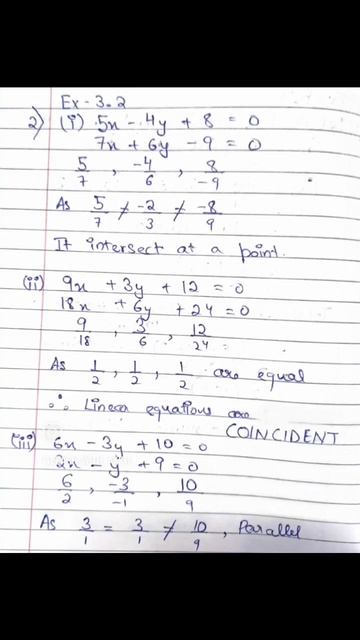 Ex - 3.2
2) (i) 5x - 4y + 8 = 0
7x + 6y - 9 = 0
5/7 , -4/6 , 8/-9
As 5/7 ≠ -2/3 ≠ -8/9
It intersect at a point.
(ii) 9x + 3y + 12 = 0
18x + 6y + 24 = 0
9/18 , 3/6 , 12/24
As 1/2 , 1/2 , 1/2 are equal
∴ Linear equations are
COINCIDENT
(iii) 6x - 3y + 10 = 0
2x - y + 9 = 0
6/2 , -3/-1 , 10/9
As 3/1 = 3/1 ≠ 10/9 , Parallel